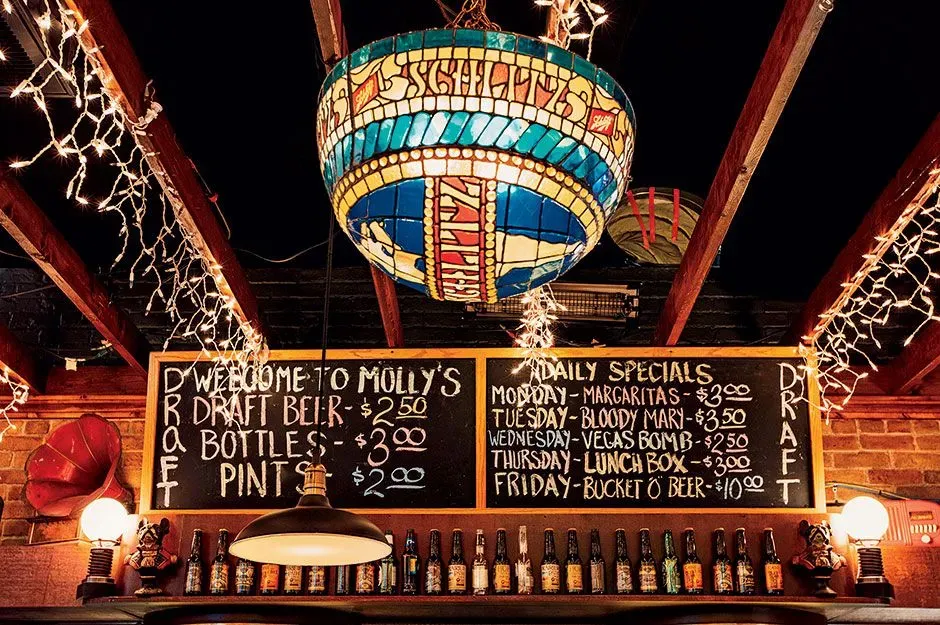 SCHLITZ
Schlitz
SCHLITZ
WELCOME TO MOLLY'S
DRAFT BEER - $2.50
BOTTLES - $3.00
PINTS $2.00
DRAFT
DAILY SPECIALS
MONDAY - MARGARITAS - $3.00
TUESDAY - BLOODY MARY - $3.50
WEDNESDAY - VEGAS BOMB - $2.50
THURSDAY - LUNCH BOX - $3.00
FRIDAY - BUCKET O' BEER - $10.00
DRAFT